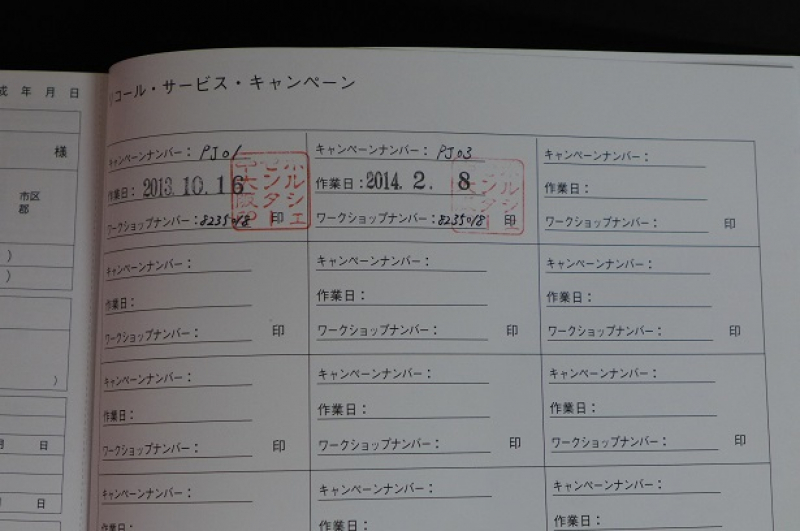 成 年 月 日
様
市区
郡
)
)
)
月 日
日
リコール・サービス・キャンペーン
キャンペーンナンバー: PJ01
作業日: 2013.10.16
ワークショップナンバー: 8235018 印
ポルシェ
センター
北大阪
キャンペーンナンバー: PJ03
作業日: 2014.2. 8
ワークショップナンバー: 8235018 印
キャンペーンナンバー:
作業日:
ワークショップナンバー: 印
キャンペーンナンバー:
作業日:
ワークショップナンバー: 印
キャンペーンナンバー:
作業日:
ワークショップナンバー: 印
キャンペーンナンバー:
作業日:
ワークショップナンバー: 印
キャンペーンナンバー:
作業日:
ワークショップナンバー: 印
キャンペーンナンバー:
作業日:
ワークショップナンバー: 印
キャンペーンナンバー:
作業日:
ワークショップナンバー: 印
キャンペーンナンバー:
作業日:
キャンペーンナンバー:
作業日:
キャンペーンナンバー:
作業日: